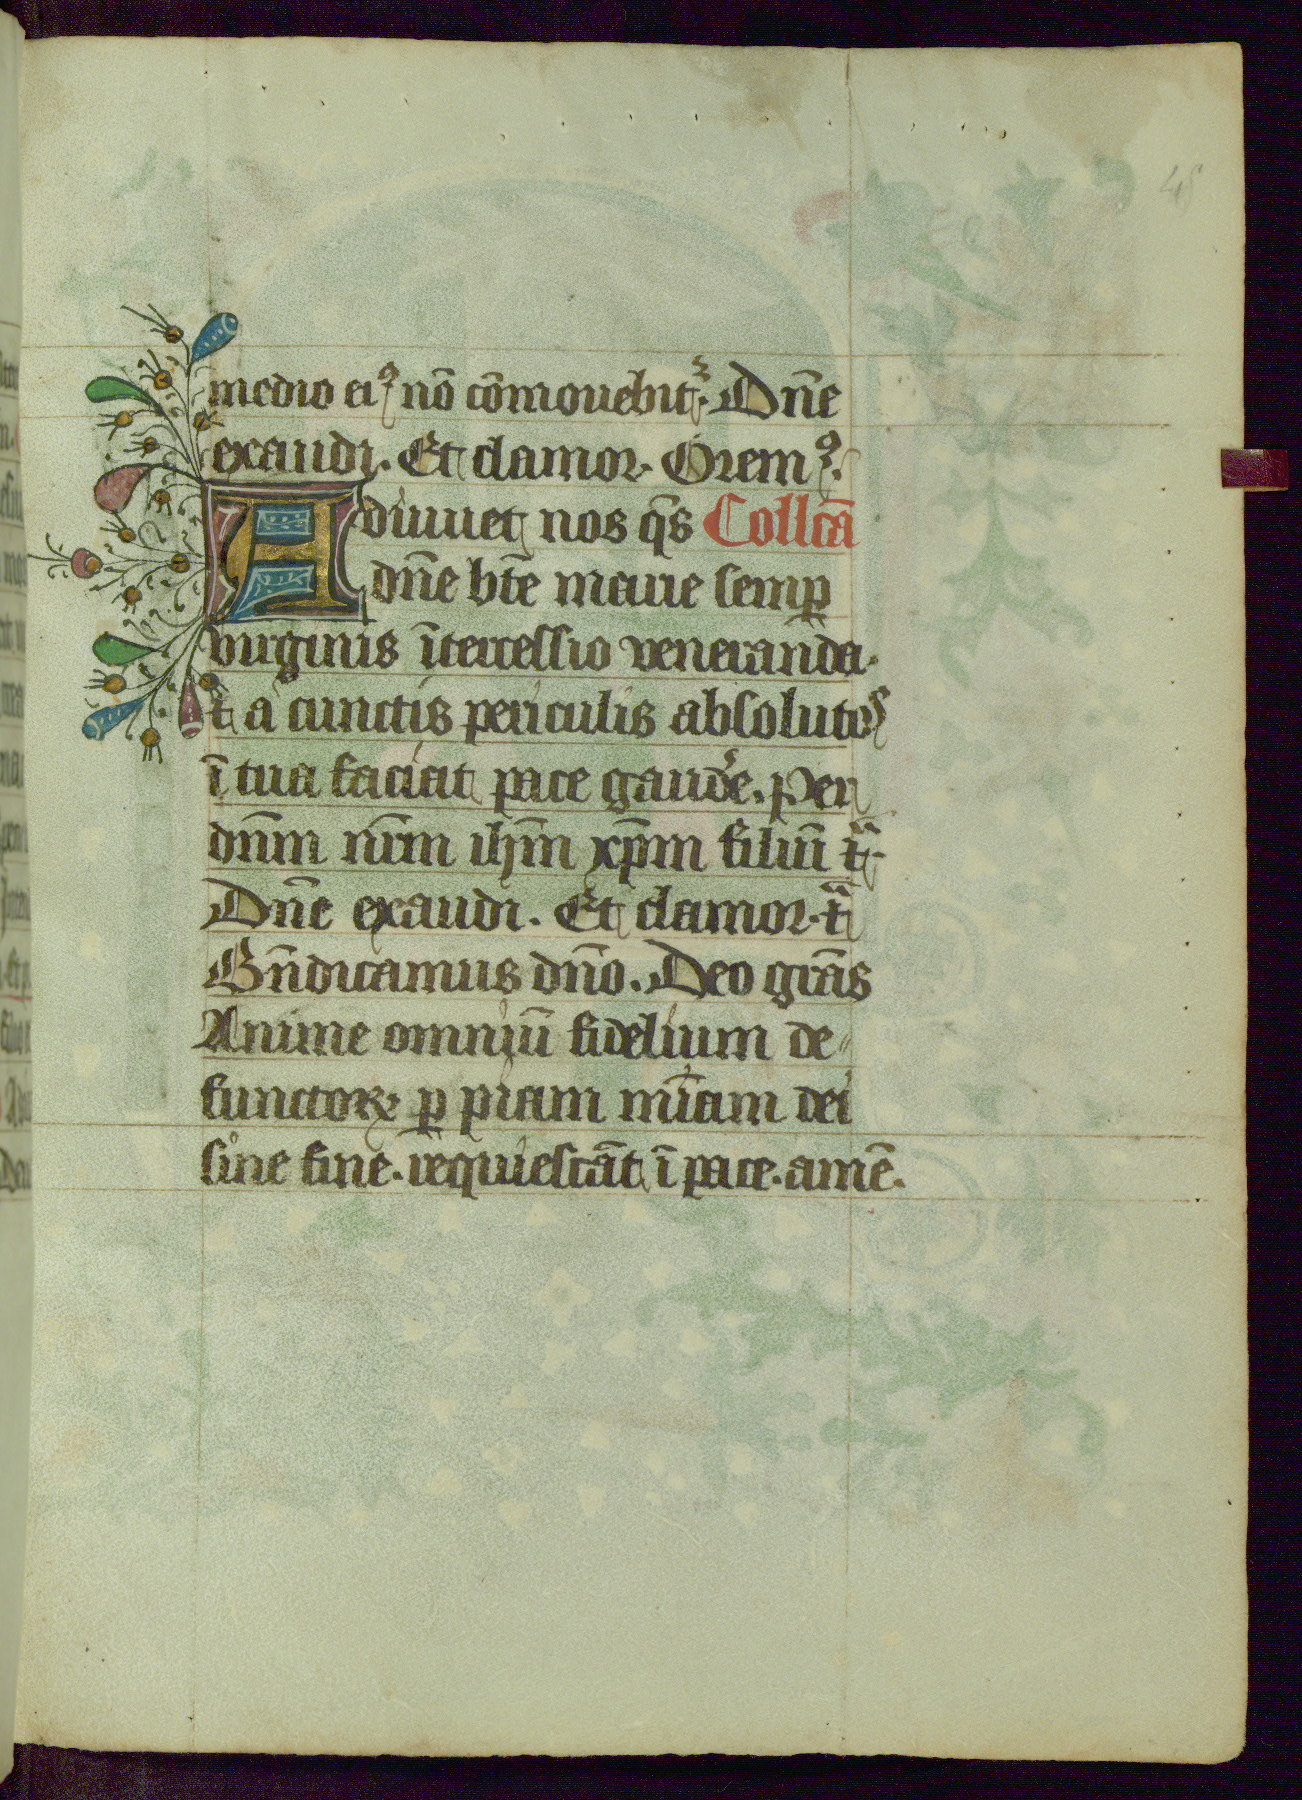 48
medio eiꝰ nō cōmouebit᷑. Dn̄e
exaudi. Et clamor. Oremꝰ.
Adiuuet nos q̄s Collcā
dn̄e bt̄e marie semꝑ
virginis ītercessio veneranda.
et a cunctis periculis absolutos
ī tua faciat pace gaud'e. Per
dn̄m nr̄m ihm̄ xp̄m filiū tͣ.
Dn̄e exaudi. Et clamor. tͣ
Bn̄dicamus dn̄o. Deo grās
Anime omniū fidelium de⸗
functoꝝ ꝑ piam mīam dei
sine fine. requiescāt ī pace. amē.